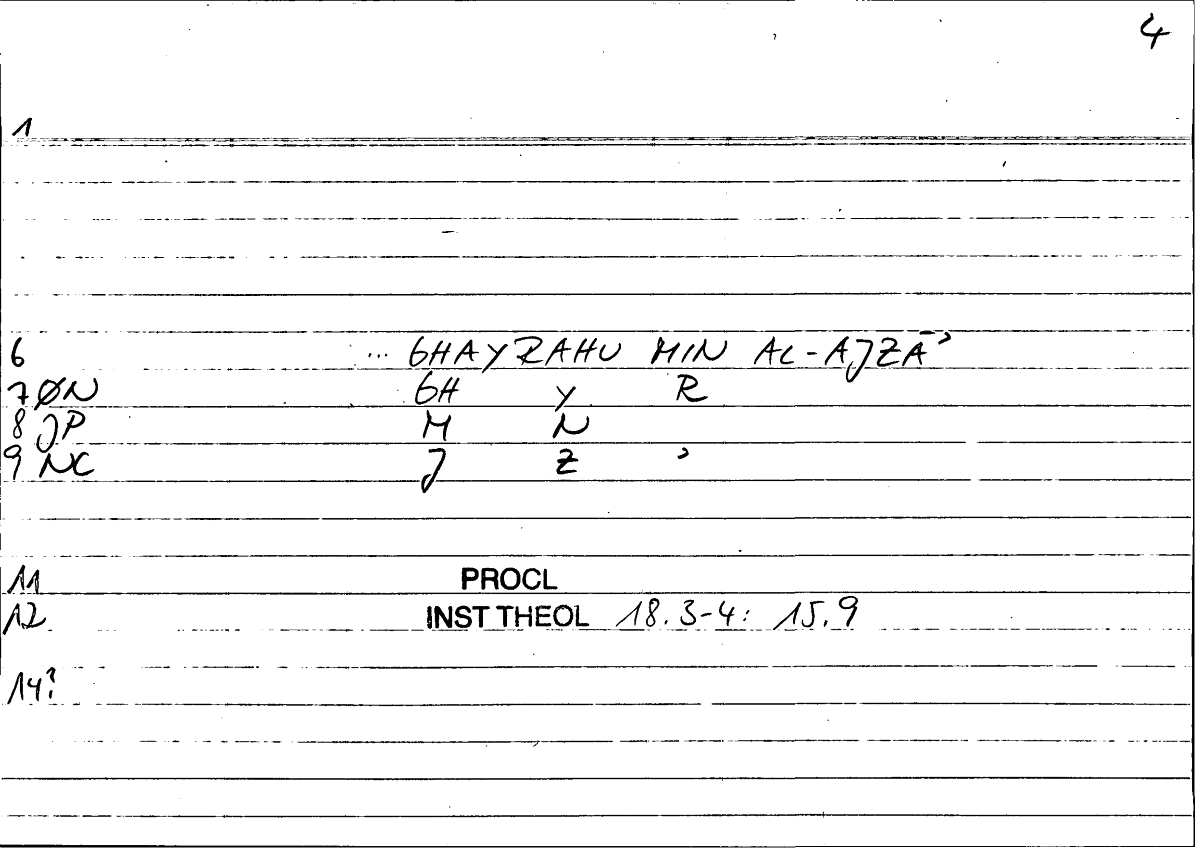 4
1
6 ... GHAYRAHU MIN AL-AJZĀʾ
7 ØN GH Y R
8 JP M N
9 NC J Z ʾ
11 PROCL
12 INST THEOL 18.3-4: 15.9
14?